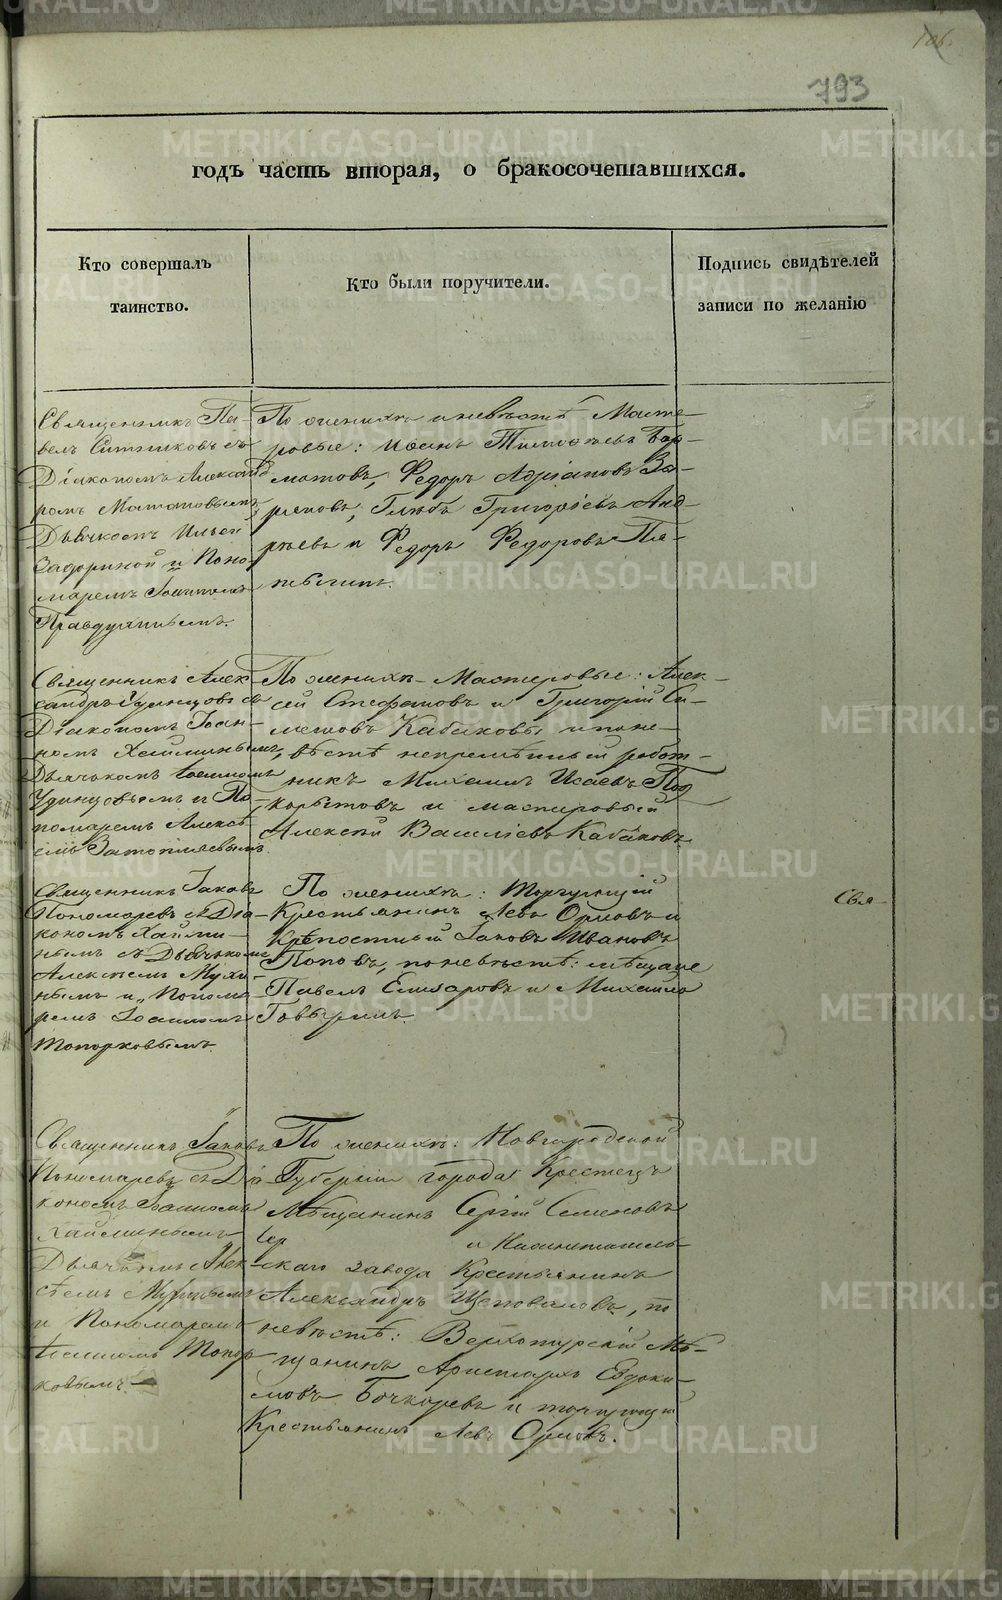 106.
793
годъ часть вторая, о бракосочетавшихся.
Кто совершалъ
таинство.
Кто были поручители.
Подпись свидѣтелей
записи по желанію
Священникъ Па-
велъ съ
Діакономъ Александ
ромъ
Дьячкомъ Ильей
и Поно
маремъ Іоанномъ
Правдухинымъ.
По женихѣ и невѣстѣ Масте-
ровые: Иванъ Тимофѣевъ Бар-
матовъ, Федоръ Адріановъ За-
Глѣбъ Григорьевъ Анд-
рѣевъ и Федоръ Федоровъ Пя-
Священникъ Алек
сандръ Удинцовъ съ
Діакономъ Іоан-
номъ Хайминымъ,
Дьячкомъ Іоанномъ
Удинцовымъ и По
номаремъ Алексѣ
емъ Затопляевымъ.
По женихѣ Мастеровые: Алек-
сей Стефановъ и Григорій Са-
Кабаковы и по не-
вѣстѣ непремѣнный работ-
никъ Михаилъ Исаевъ Под
корытовъ и мастеровый
Алексѣй Василіевъ Кабаковъ.
Священникъ Іаковъ
Пономаревъ съ Діа-
кономъ Хайми-
нымъ съ Дьячкомъ
Алексѣемъ Мухи
нымъ и Понома-
ремъ Іоанномъ
Топорковымъ.
По женихѣ: Торгующій
Крестьянинъ Левъ Орловъ и
Крѣпостный Іаковъ Ивановъ
Поповъ, по невѣстѣ: мѣщане
Павелъ Елизаровъ и Михайло
Говыринъ.
Свя-
Священникъ Іаковъ
Пономаревъ съ Діа-
кономъ Іоанномъ
Хайминымъ
Дьячкомъ Алек-
сѣемъ Мухинымъ
и Пономаремъ
Іоанномъ Топор
ковымъ.
По женихѣ: Новгородской
Губерніи города Крестецъ
Мѣщанинъ Сергій Семеновъ
и
скаго завода Крестьянинъ
Александръ Щеповаловъ, по
невѣстѣ: Верхотурскій Мѣ-
щанинъ Аристархъ Евдоки-
мовъ Бочкаревъ и торгующій
Крестьянинъ Левъ Орловъ.
METRIKI.GASO-URAL.RU